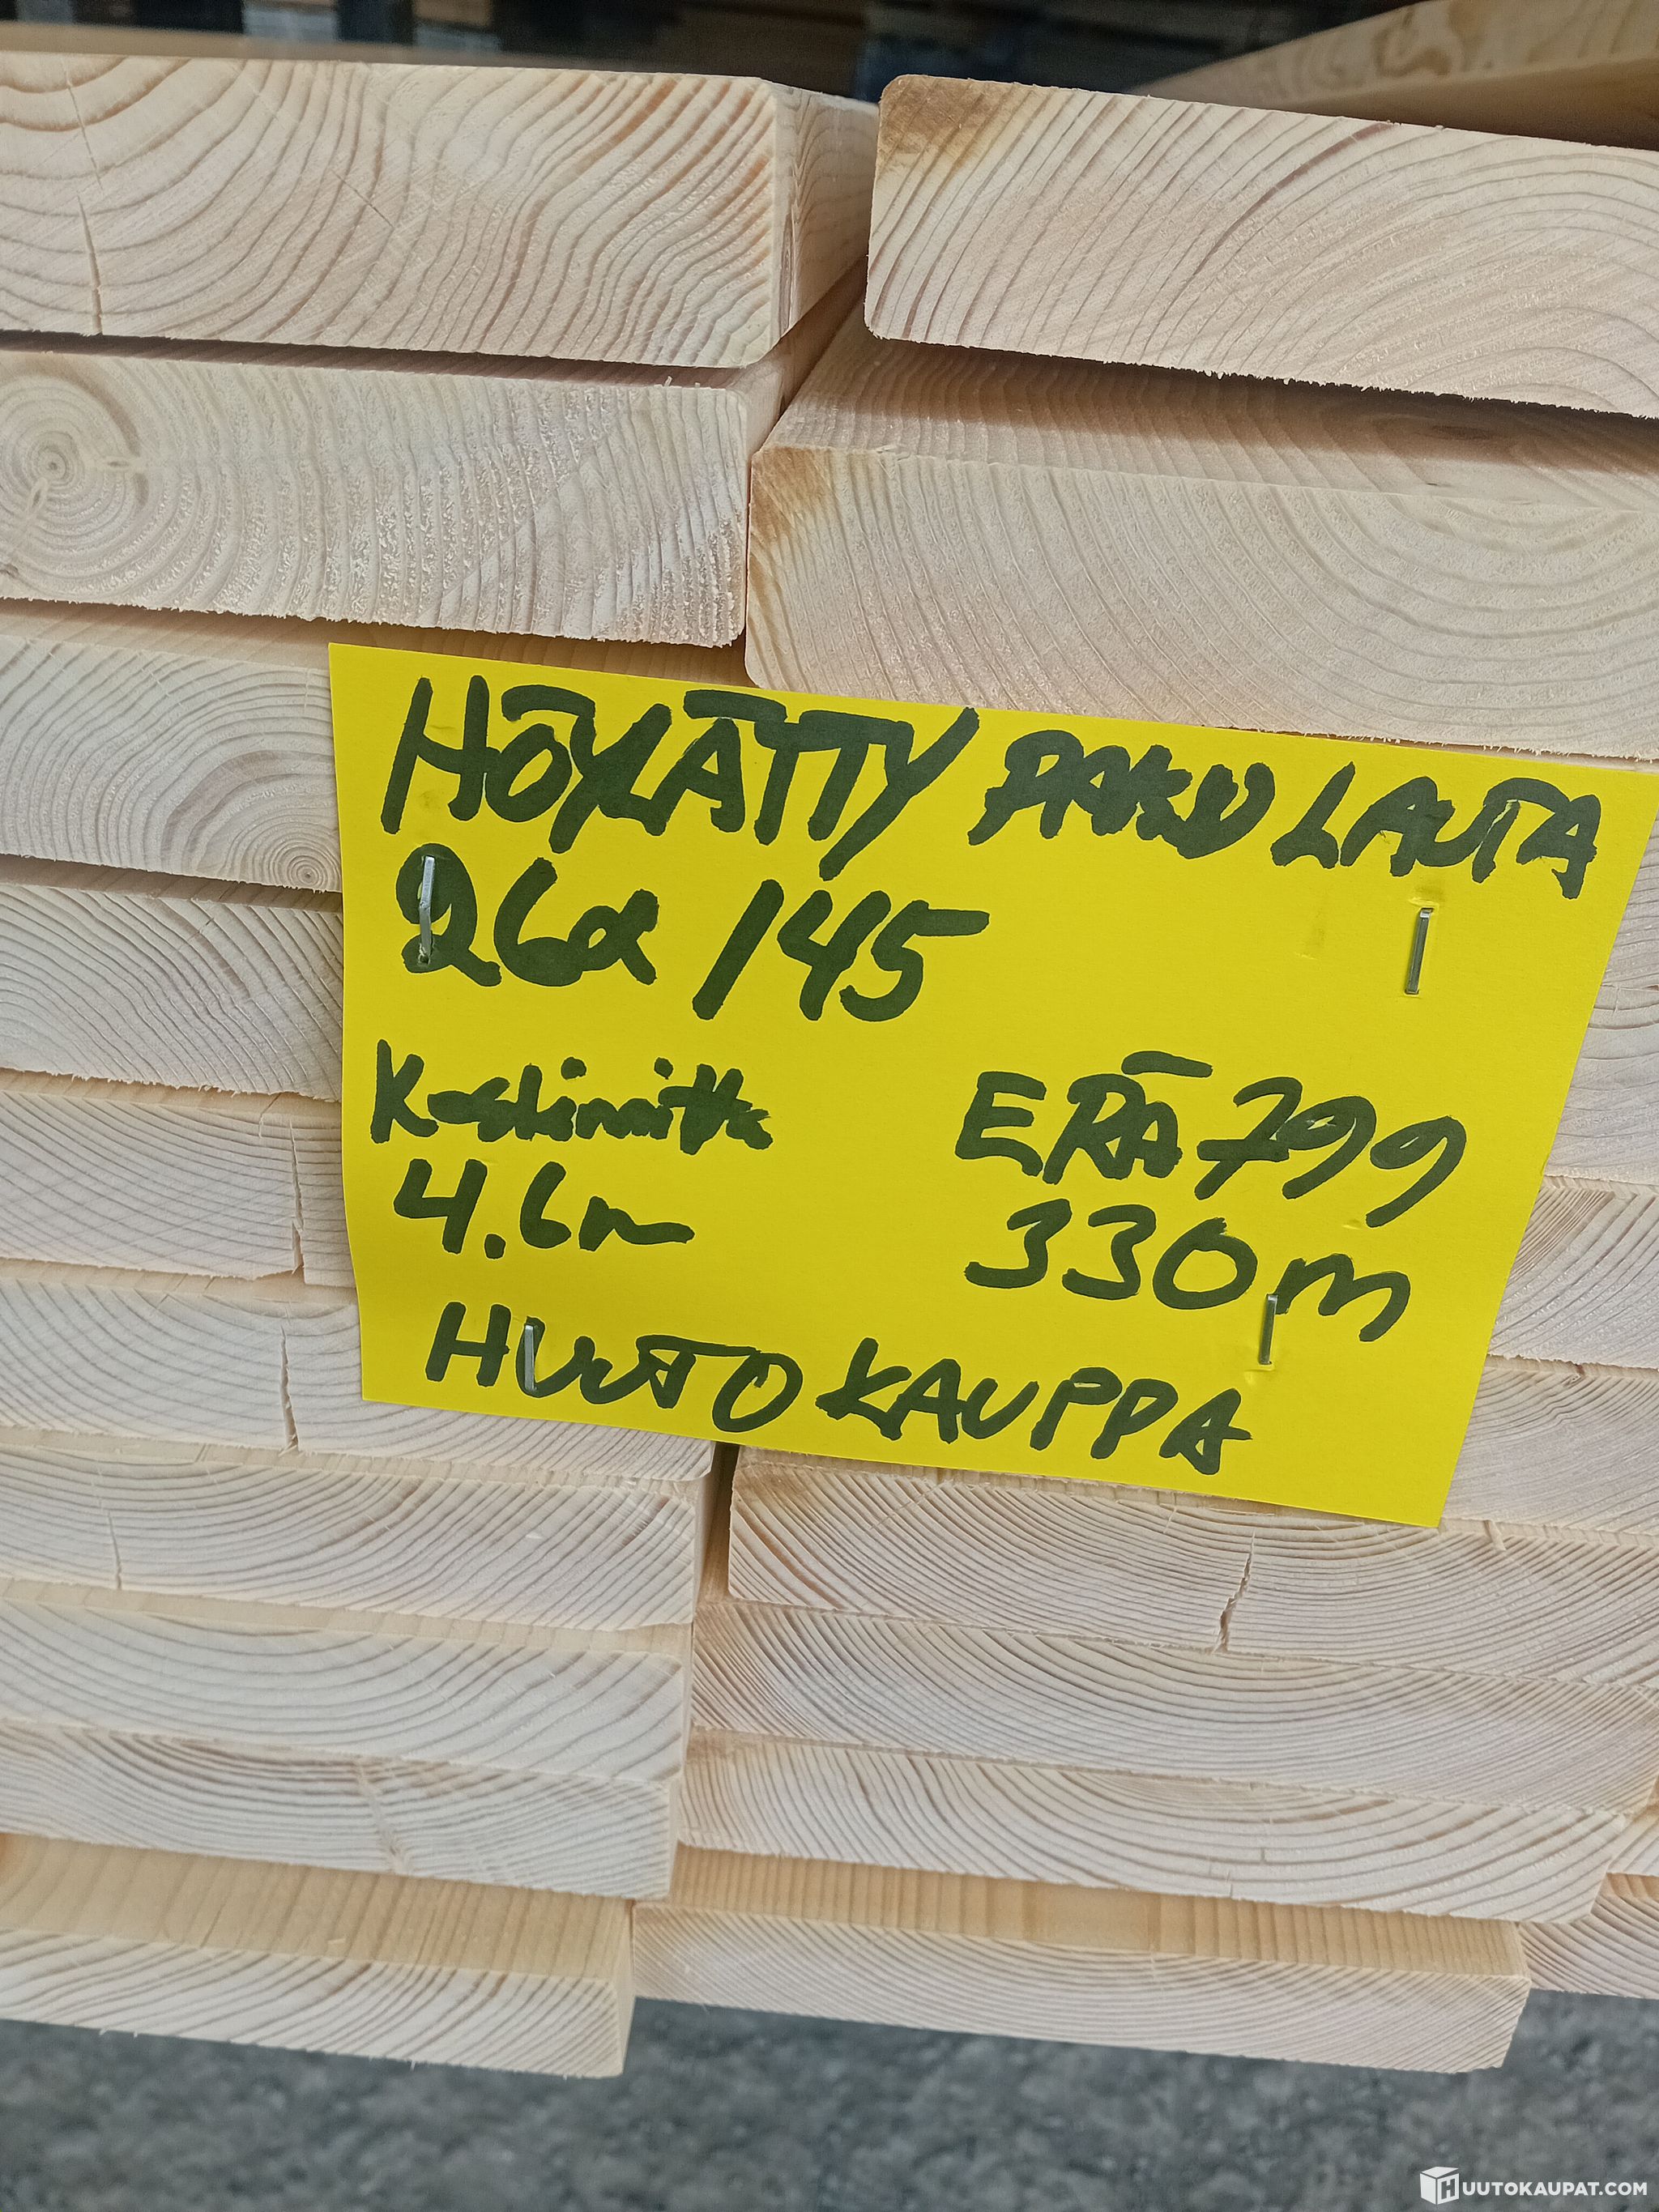 HÖYLÄTTY PAKSU LAUTA
26x145
Keskimitta
4.6m
ERÄ 799
330m
HUUTOKAUPPA
HUUTOKAUPAT.COM